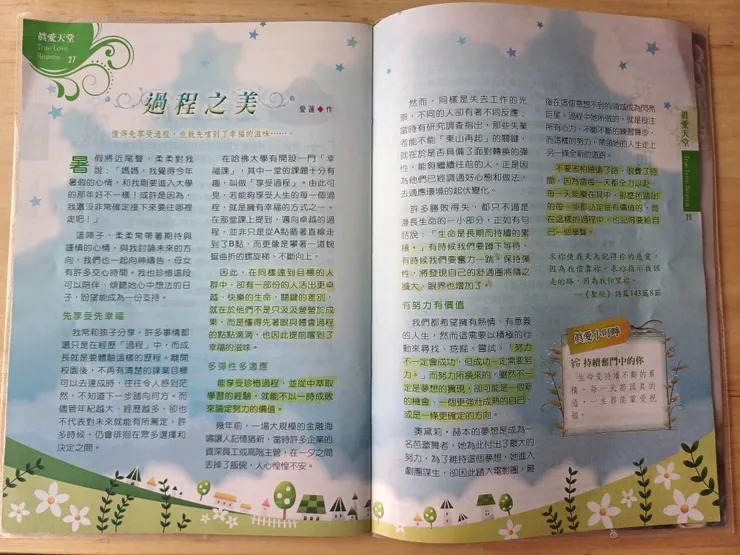 真愛天堂
True Love
Heaven
27
過程之美
愛蓮◆作
懂得先享受過程，也就先嚐到了幸福的滋味……
暑假將近尾聲，柔柔對我
說：「媽媽，我覺得今年
暑假的心情，和我剛要進入大學
的那年好不一樣！或許是因為，
我還沒非常確定接下來要往哪裡
走吧！」
這陣子，柔柔常帶著期待與
謹慎的心情，與我討論未來的方
向，我們也一起向神禱告，母女
有許多交心時間。我也珍惜這段
可以陪伴、傾聽她心中想法的日
子，盼望能成為一份支持。
先享受先幸福
我常和孩子分享，許多事情都
還只是在經歷「過程」中，而成
長就是要體驗這樣的歷程。離開
校園後，不再有清楚的課業目標
可以去達成時，往往令人感到茫
然，不知道下一步踏向何方。而
儘管年紀越大、經歷越多，卻也
不代表對未來就能有所篤定，許
多時候，仍會徘徊在眾多選擇和
決定之間。
在哈佛大學有開設一門「幸
福課」，其中一堂的課題十分有
趣，叫做「享受過程」。由此可
見，若能夠享受人生的每一個過
程，就是擁有幸福的方式之一。
在那堂課上提到，邁向卓越的過
程，並非只是從A點循著直線走
到了B點，而更像是攀著一道蜿
蜒曲折的螺旋梯、不斷向上。
因此，在同樣達到目標的人
群中，卻有一部份的人活出更卓
越、快樂的生命，關鍵的差別，
就在於他們不是只汲汲營營於成
果，而是懂得先著眼與體會過程
的點點滴滴，也因此提前嚐到了
幸福的滋味。
多彈性多適應
能享受珍惜過程，並從中萃取
學習的經驗，就能不以一時成敗
來論定努力的價值。
幾年前，一場大規模的金融海
嘯讓人記憶猶新，當時許多企業的
資深員工或高階主管，在一夕之間
丟掉了飯碗，人心惶惶不安。
然而，同樣是失去工作的光
景，不同的人卻有著不同反應；
當時有研究調查指出，那些失業
者能不能「東山再起」的關鍵，
就在於是否具備了面對轉換的彈
性，能夠繼續往前的人，正是因
為他們已經調適好心態和做法，
去適應環境的起伏變化。
許多勝敗得失，都只不過是
漫長生命的一小部分，正如有句
話說：「生命是長期而持續的累
積。」有時候我們要蹲下等待，
有時候我們要奮力一跳，保持彈
性，將發現自己的舒適圈將隨之
擴大，眼界也增加了！
有努力有價值
我們都希望擁有熱情、有意義
的人生，然而這需要以積極的行
動來尋找、挖掘、嘗試。「努力
不一定會成功，但成功一定需要努
力。」而努力所換來的，雖然不一
定是夢想的實現，卻可能是一個新
的機會、一個更強壯成熟的自己，
或是一條更確定的方向。
奧黛莉．赫本的夢想是成為一
名芭蕾舞者，她為此付出了最大的
努力，為了維持這個夢想，她進入
劇團謀生，卻因此踏入電影圈，最
後在這個意想不到的領域成為閃亮
巨星。過程中她所做的，就是投注
所有心力、不斷不斷的練習舞步，
而這樣的努力，帶領她的人生走上
另一條全新的道路。
不要害怕繞遠了路、浪費了時
間，因為當每一天都全力以赴，
每一天是樂在其中，那麼所踏出
的每一步都必定是有價值的，而
在這樣的過程中，也記得要給自
己一個擁擊。
求祢使我天天記得祢的慈愛，
因為我信靠祢；求祢指示我該
走的路，因為我仰望祢。
《聖經》詩篇143篇8節
真愛天堂
True Love Heaven
28
真愛小叮嚀
給 持續奮鬥中的你
生命是持續不斷的累
積，每一天都認真的
過，一生都能蒙受祝
福。